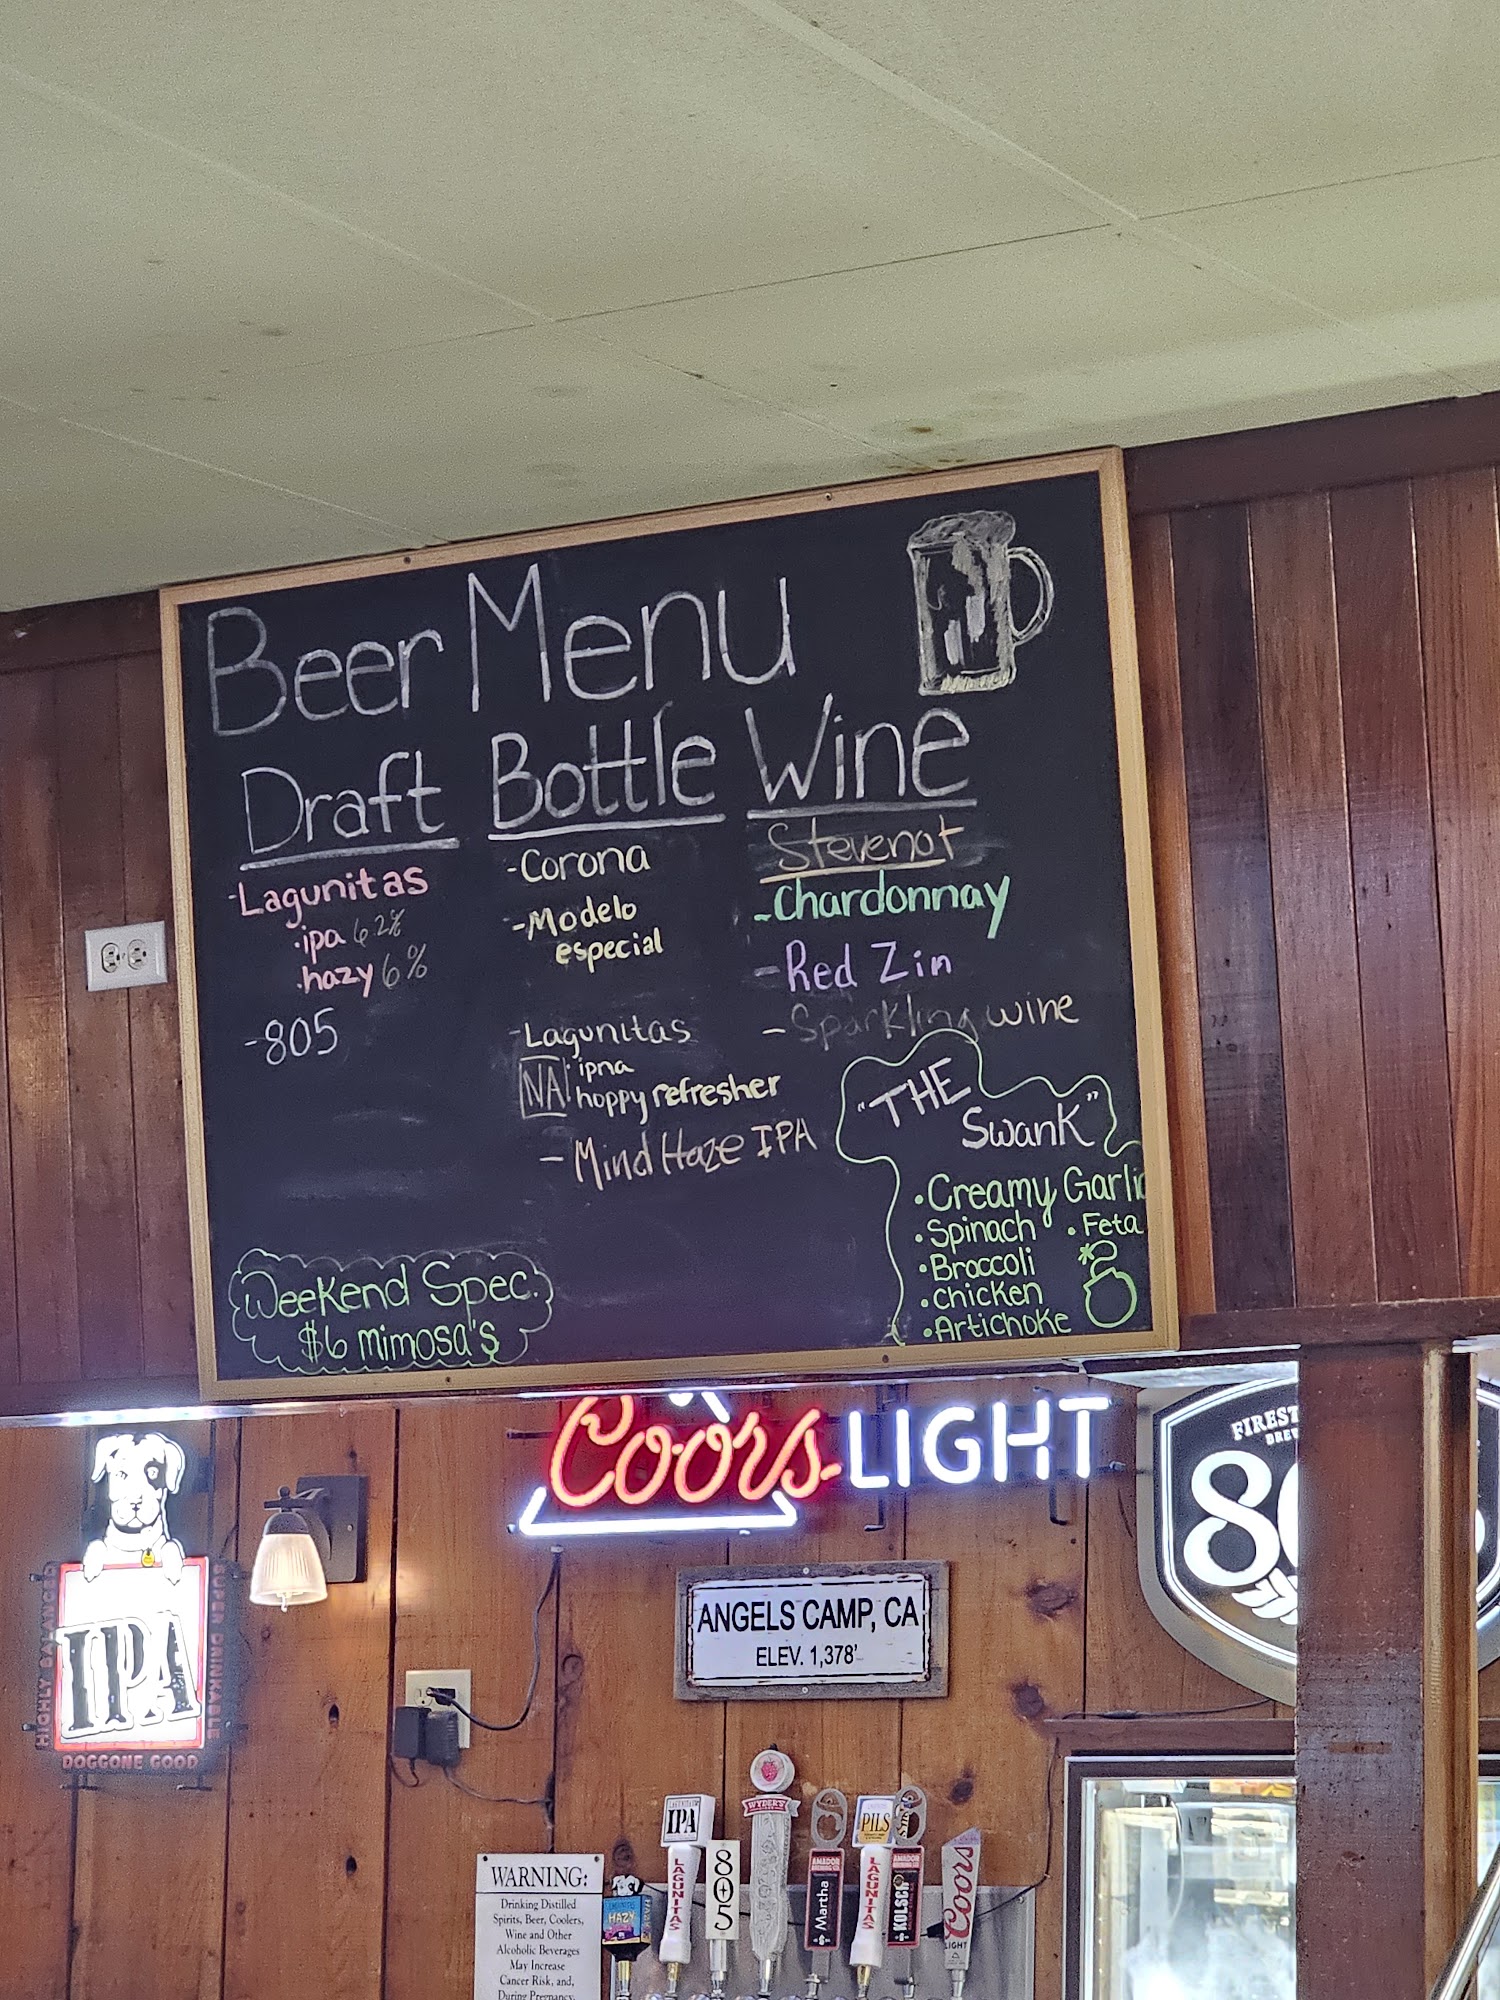 Beer Menu
Draft
-Lagunitas
·ipa 6.2%
·hazy 6%
-805
Bottle
-Corona
-Modelo
especial
-Lagunitas
NA
·ipna
·hoppy refresher
-Mind Haze IPA
Wine
Stevenot
-Chardonnay
-Red Zin
-Sparkling wine
"THE
Swank"
·Creamy Garlic
·Spinach ·Feta
·Broccoli
·Chicken
·Artichoke
Weekend Spec.
$6 mimosa's
Coors LIGHT
HIGHLY BALANCED
IPA
SUPER DRINKABLE
DOGGONE GOOD
ANGELS CAMP, CA
ELEV. 1,378'
WARNING:
Drinking Distilled
Spirits, Beer, Coolers,
Wine and Other
Alcoholic Beverages
May Increase
Cancer Risk, and,
During Pregnancy,
HAZY
IPA
LAGUNITAS
805
WYDER'S
AMADOR
Martha
PILS
LAGUNITAS
AMADOR
KOLSCH
Coors
LIGHT